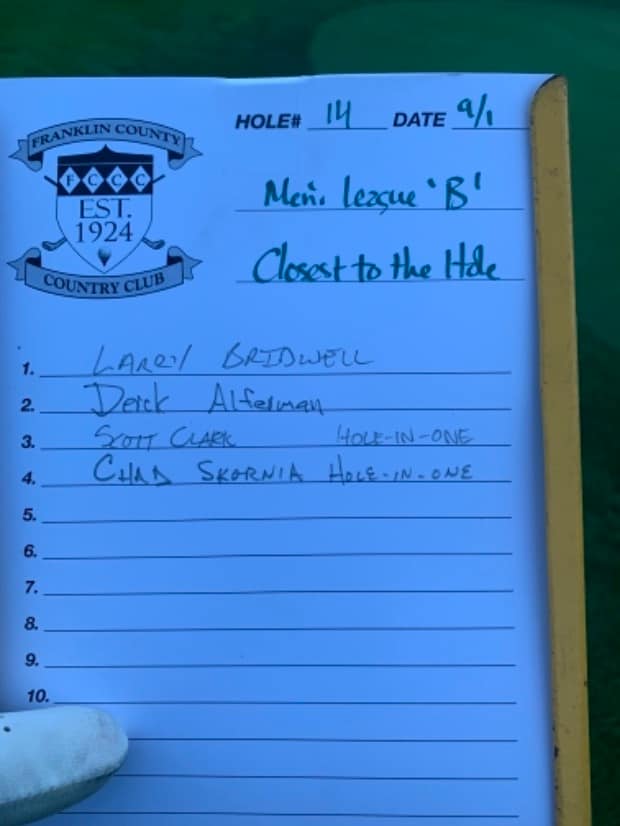 HOLE# 14 DATE 9/1
FRANKLIN COUNTY
F C C C
EST.
1924
COUNTRY CLUB
Men's League 'B'
Closest to the Hole
1. LARRY BRIDWELL
2. Derek Alferman
3. SCOTT CLARK HOLE-IN-ONE
4. CHAD SKORNIA HOLE-IN-ONE
5.
6.
7.
8.
9.
10.